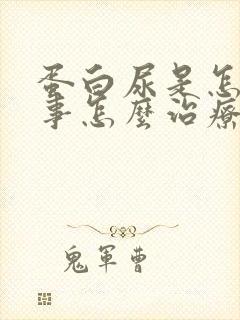 蛋白尿是怎
事怎麼治療
鬼軍曹